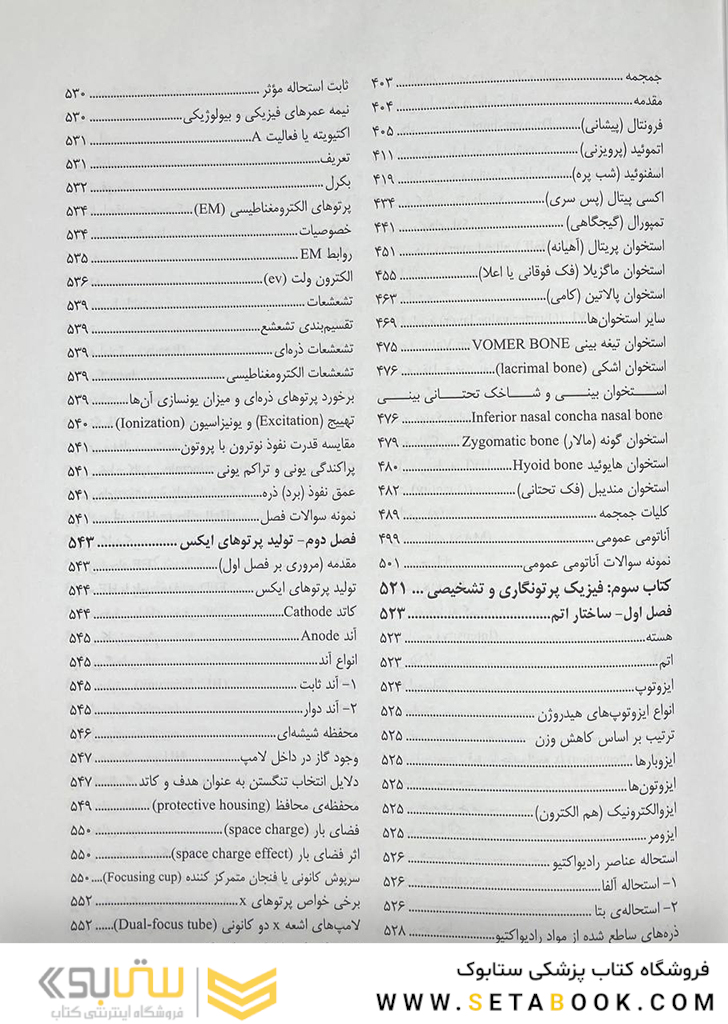 جمجمه ..... ۴۰۳
مقدمه ..... ۴۰۴
فرونتال (پیشانی) ..... ۴۰۵
اتموئید (پرویزنی) ..... ۴۱۱
اسفنوئید (شب پره) ..... ۴۱۹
اکسی پیتال (پس سری) ..... ۴۳۴
تمپورال (گیجگاهی) ..... ۴۴۱
استخوان پریتال (آهیانه) ..... ۴۵۱
استخوان ماگزیلا (فک فوقانی یا اعلا) ..... ۴۵۵
استخوان پالاتین (کامی) ..... ۴۶۳
سایر استخوان‌ها ..... ۴۶۹
استخوان تیغه بینی VOMER BONE ..... ۴۷۵
استخوان اشکی (lacrimal bone) ..... ۴۷۶
استخوان بینی و شاخک تحتانی بینی
Inferior nasal concha nasal bone ..... ۴۷۶
استخوان گونه (مالار) Zygomatic bone ..... ۴۷۹
استخوان هایوئید Hyoid bone ..... ۴۸۰
استخوان مندیبل (فک تحتانی) ..... ۴۸۲
کلیات جمجمه ..... ۴۸۹
آناتومی عمومی ..... ۴۹۹
نمونه سوالات آناتومی عمومی ..... ۵۰۱
کتاب سوم: فیزیک پرتونگاری و تشخیصی ... ۵۲۱
فصل اول- ساختار اتم ..... ۵۲۳
هسته ..... ۵۲۳
اتم ..... ۵۲۳
ایزوتوپ ..... ۵۲۴
انواع ایزوتوپ‌های هیدروژن ..... ۵۲۵
ترتیب بر اساس کاهش وزن ..... ۵۲۵
ایزوبارها ..... ۵۲۵
ایزوتون‌ها ..... ۵۲۵
ایزوالکترونیک (هم الکترون) ..... ۵۲۵
ایزومر ..... ۵۲۵
استحاله عناصر رادیواکتیو ..... ۵۲۶
۱- استحاله آلفا ..... ۵۲۶
۲- استحاله‌ی بتا ..... ۵۲۶
ذره‌های ساطع شده از مواد رادیواکتیو ..... ۵۲۸
ثابت استحاله مؤثر ..... ۵۳۰
نیمه عمرهای فیزیکی و بیولوژیکی ..... ۵۳۰
اکتیویته یا فعالیت A ..... ۵۳۱
تعریف ..... ۵۳۱
بکرل ..... ۵۳۲
پرتوهای الکترومغناطیسی (EM) ..... ۵۳۴
خصوصیات ..... ۵۳۴
روابط EM ..... ۵۳۵
الکترون ولت (ev) ..... ۵۳۶
تشعشعات ..... ۵۳۹
تقسیم‌بندی تشعشع ..... ۵۳۹
تشعشعات ذره‌ای ..... ۵۳۹
تشعشعات الکترومغناطیسی ..... ۵۳۹
برخورد پرتوهای ذره‌ای و میزان یونسازی آن‌ها ..... ۵۳۹
تهییج (Excitation) و یونیزاسیون (Ionization) ..... ۵۴۰
مقایسه قدرت نفوذ نوترون با پروتون ..... ۵۴۱
پراکندگی یونی و تراکم یونی ..... ۵۴۱
عمق نفوذ (برد) ذره ..... ۵۴۱
نمونه سوالات فصل ..... ۵۴۱
فصل دوم- تولید پرتوهای ایکس ..... ۵۴۳
مقدمه (مروری بر فصل اول) ..... ۵۴۳
تولید پرتوهای ایکس ..... ۵۴۴
کاتد Cathode ..... ۵۴۴
آند Anode ..... ۵۴۵
انواع آند ..... ۵۴۵
۱- آند ثابت ..... ۵۴۵
۲- آند دوار ..... ۵۴۵
محفظه شیشه‌ای ..... ۵۴۶
وجود گاز در داخل لامپ ..... ۵۴۷
دلایل انتخاب تنگستن به عنوان هدف و کاتد ..... ۵۴۷
محفظه‌ی محافظ (protective housing) ..... ۵۴۹
فضای بار (space charge) ..... ۵۵۰
اثر فضای بار (space charge effect) ..... ۵۵۰
سرپوش کانونی یا فنجان متمرکز کننده (Focusing cup) .... ۵۵۰
برخی خواص پرتوهای x ..... ۵۵۲
لامپ‌های اشعه x دو کانونی (Dual-focus tube) ..... ۵۵۲
فروشگاه کتاب پزشکی ستابوک
WWW.SETABOOK.COM
ستابوک
فروشگاه اینترنتی کتاب